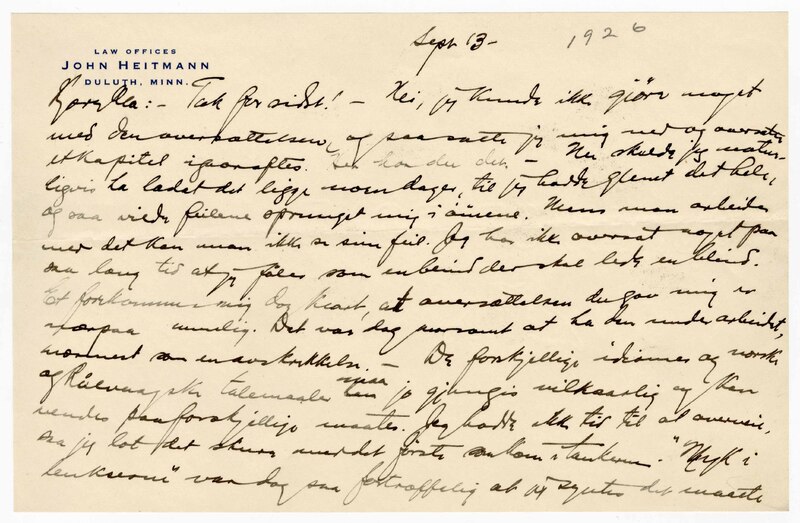 LAW OFFICES
JOHN HEITMANN
DULUTH, MINN.
Sept 13 - 1926
Kjære Ola: - Tak for sidst! - Nei, jeg kunde ikke gjöre noget
med den oversættelsen, og saa satte jeg mig ned og oversatte
et kapitel igaaraftes. Her har du det. - Nu skulde jeg natur-
ligvis ha ladet det ligge noen dager, til jeg hadde glemt det hele,
og saa vilde feilene sprunget mig i öinene. Mens man arbeider
med det kan man ikke se sine feil. Jeg har ikke oversat noget paa
saa lang tid at jeg föler som en blind der skal lede en blind.
Et forekommer mig dog klart, at oversættelsen du gav mig er
umulig. Det var dog morsomt at ha den under arbeidet,
nærmest som en avskrækkelse. - De forskjellige idiomer og norske
og Rölvaagske talemaader maa jo gjengis vilkaarlig og kan
vendes paa forskjellige maater. Jeg hadde ikke tid til at overveie,
saa jeg lot det skure med det förste som kom i tankerne. "Myk i
lenkserne" var dog saa fortræffelig at jeg syntes det maatte